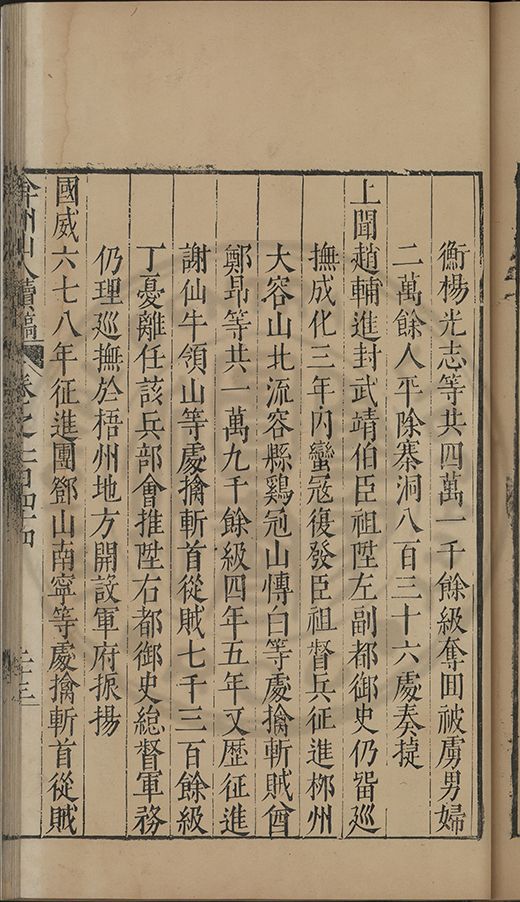 衡楊光志等共四萬一千餘級奪回被虜男婦
二萬餘人平除寨洞八百三十六處奏㨗
上聞趙輔進封武靖伯臣祖陞左副都御史仍畱巡
撫成化三年内蠻冦復發臣祖督兵征進桞州
大容山北流容縣鷄冠山慱白等處擒斬賊酋
鄭昂等共一萬九千餘級四年五年又歷征進
謝仙牛領山等處擒斬首從賊七千三百餘級
丁憂離任該兵部會推陞右都御史縂督軍務
仍理廵撫於梧州地方開設軍府振揚
國威六七八年征進團鄧山南寧等處擒斬首從賊
弇州山人續稿 卷之一百四十四 二十三